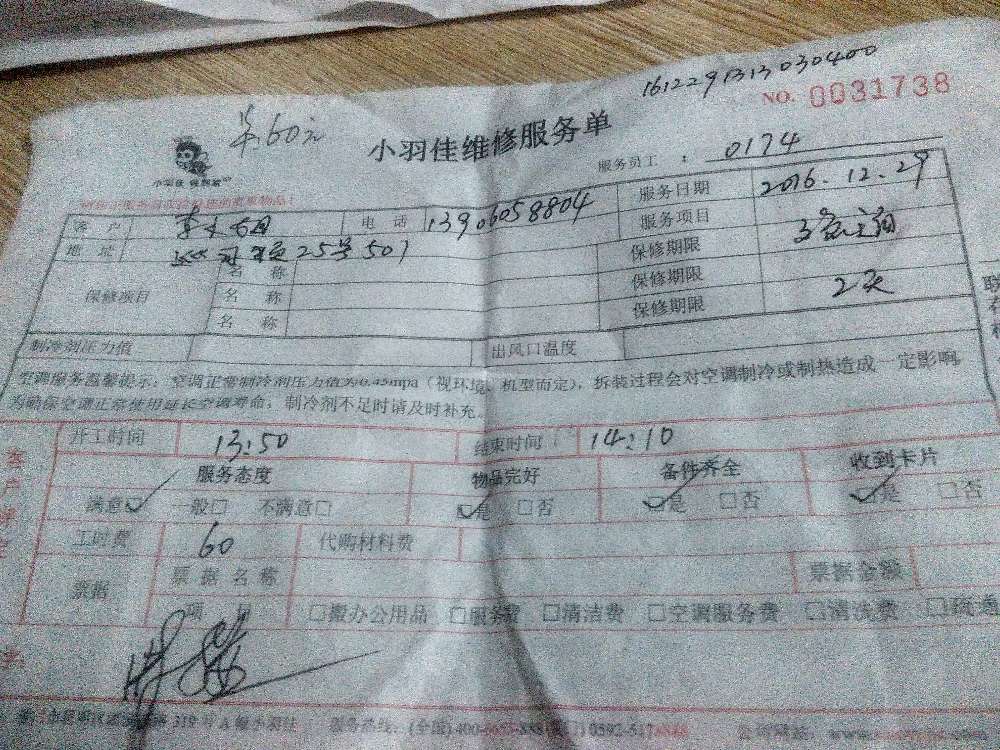 1612291313030400
NO. 0031738
60元
小羽佳维修服务单
小羽佳
服务员工 : 0174
客 户 电 话 13906058804 服务日期 2016.12.29
地 址 25号501 服务项目
保修项目 名 称 保修期限
名 称 保修期限 2天
名 称 保修期限
制冷剂压力值 出风口温度
空调服务温馨提示：空调正常制冷剂压力值为0.45mpa（视环境、机型而定），拆装过程会对空调制冷或制热造成一定影响
为确保空调正常使用延长空调寿命，制冷剂不足时请及时补充。
开工时间 13:50 结束时间 14:10
服务态度 物品完好 备件齐全 收到卡片
满意☑ 一般□ 不满意□ ☑是 □否 ☑是 □否 ☑是 □否
工时费 60 代购材料费
票据 票据名称 票据金额
项 目 □搬办公用品 □服务费 □清洁费 □空调服务费 □清洗费 □疏通
服务热线：(全国)400-